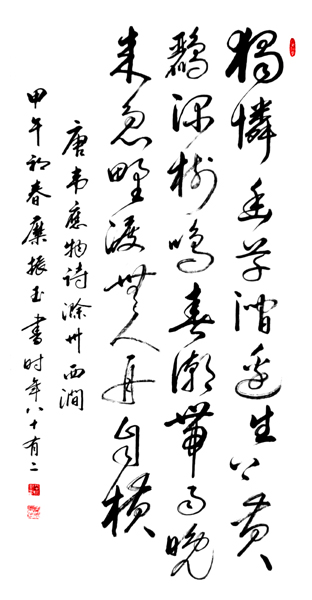 獨憐幽草澗邊生上黄
鸝深树鳴春潮帶雨晚
来急野渡無人舟自横
唐韦應物詩滁州西澗
甲午初春糜振玉書时年八十有二